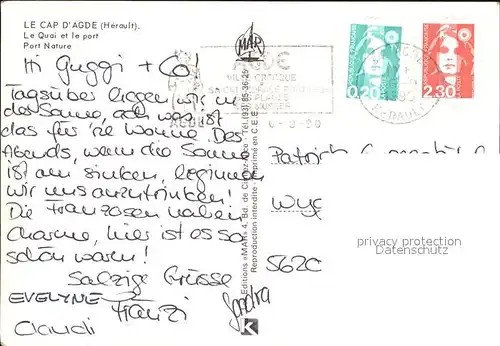 LE CAP D'AGDE (Hérault).
Le Quai et le port
Port Nature
Hi Guggi + Co!
Tagsüber liegen wir in
der Sonne, ach was ist
das für 'ne Wonne. Des
Abends, wenn die Sonne
ist am sinken, beginnen
wir uns anzutrinken!
Die Franzosen haben
Charme, hier ist es so
schön warm!
Salzige Grüsse
EVELYNE Franzi Sandra
Claudi
MAR
AGDE
AGDE
HERAULT
0,20
2,30
Editions «MAR» 4, Bd. de
Tél. (93) 85-36-25
Reproduction interdite - Imprimé en C.E.E.
K
562C
privacy protection
Datenschutz